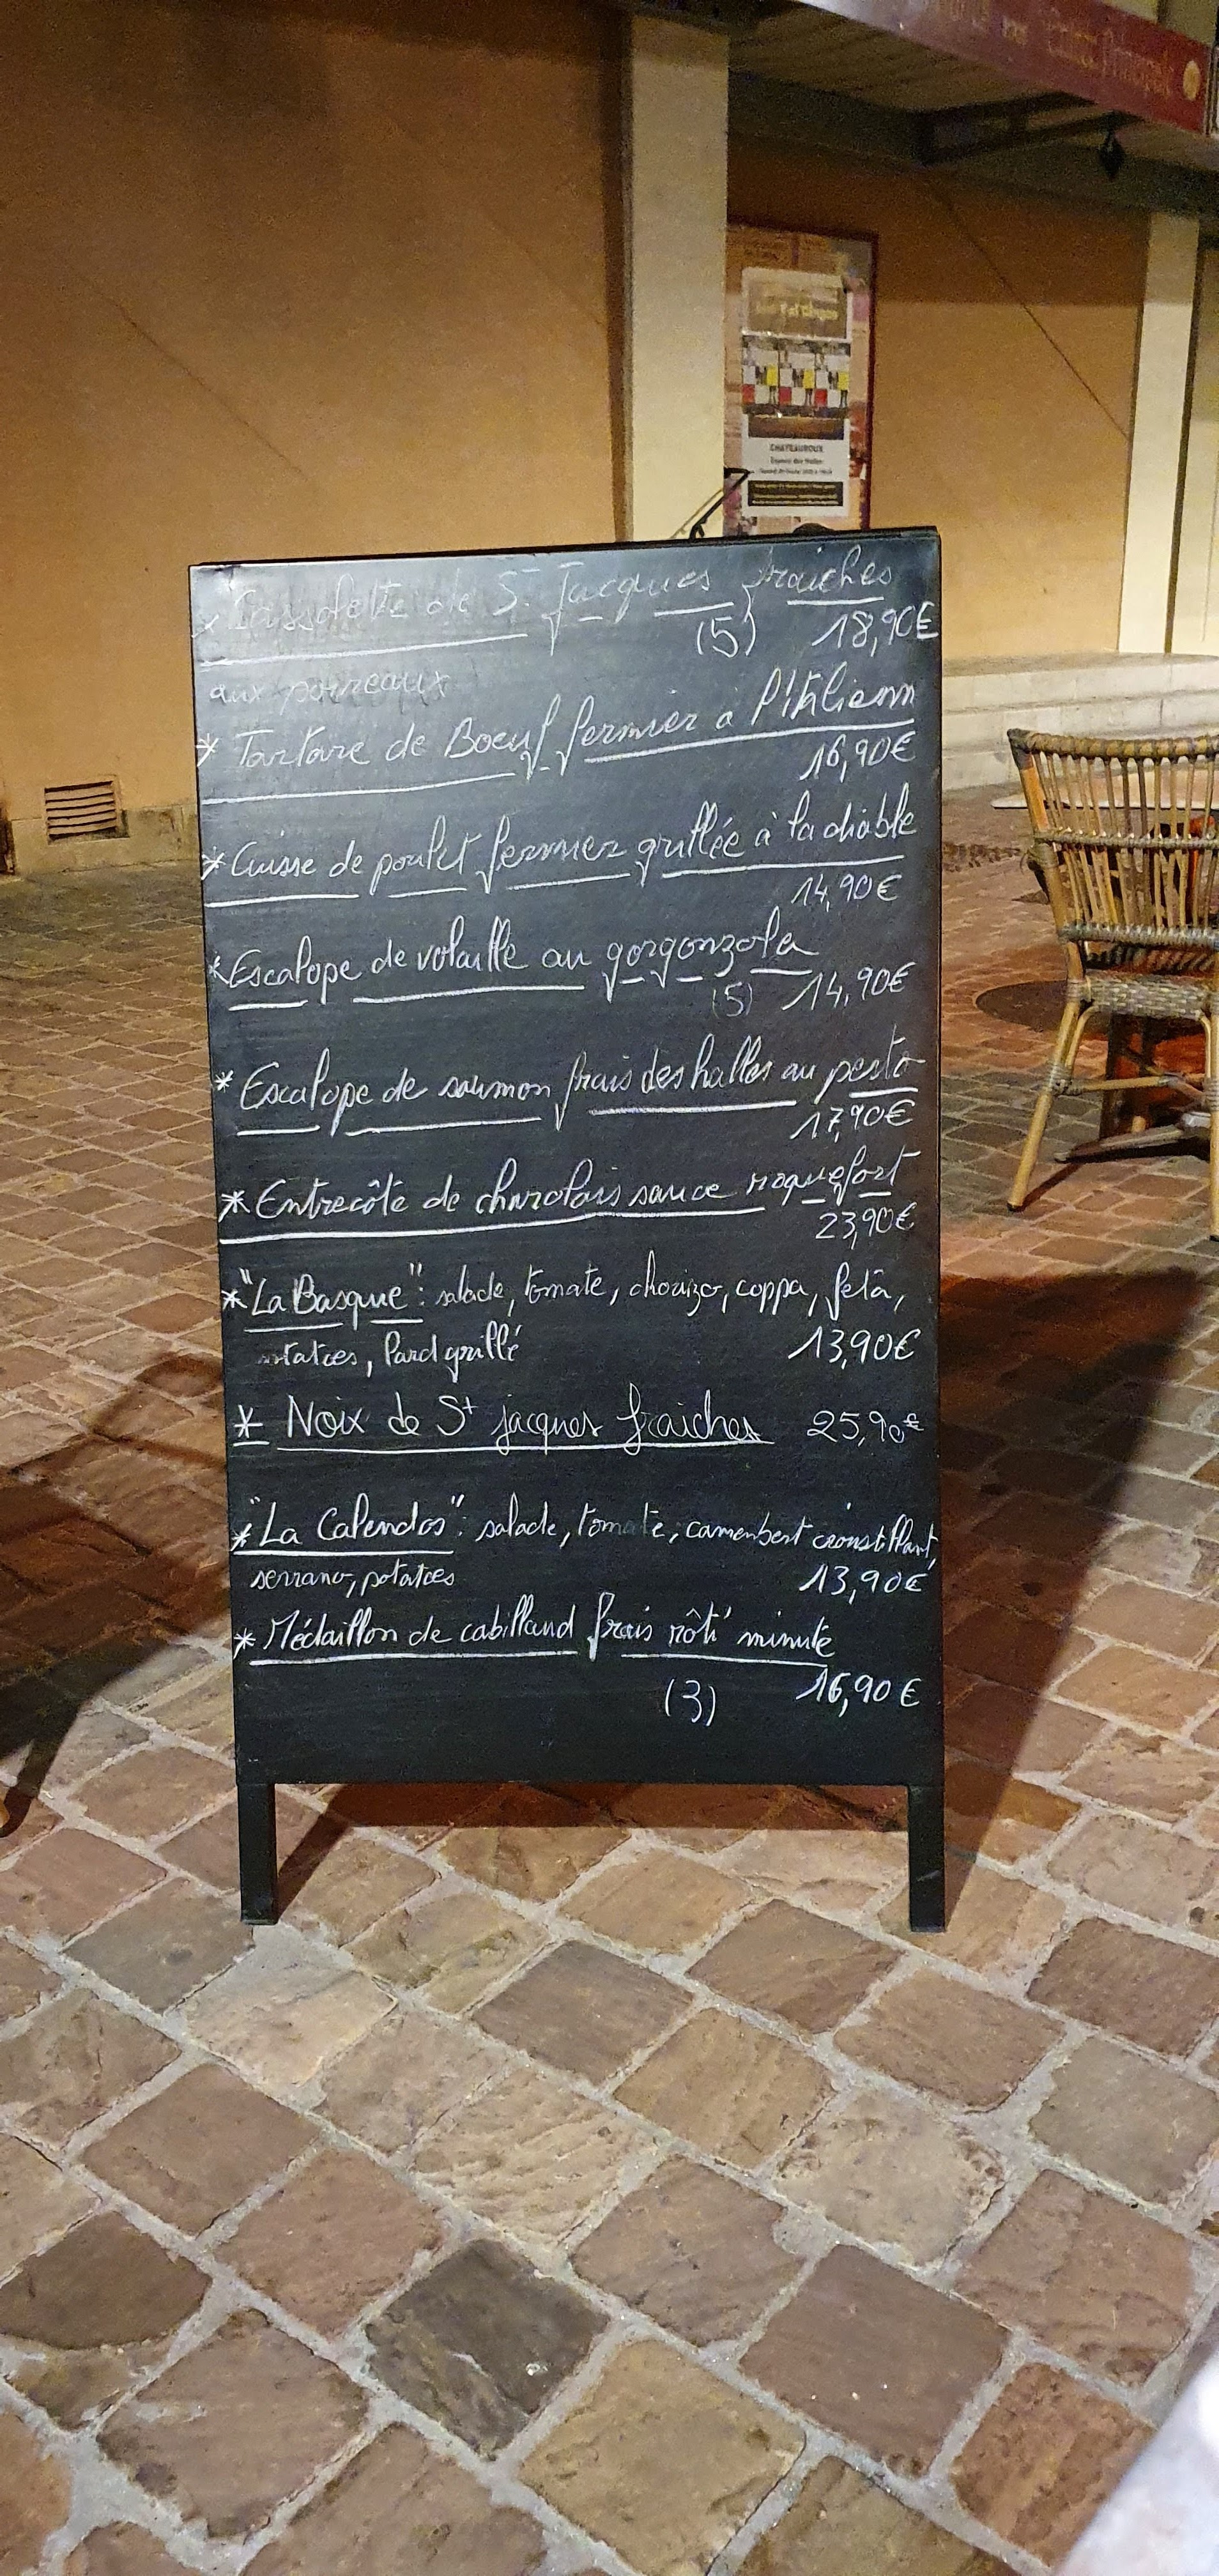 * Cassolette de St Jacques fraiches
(5) 18,90€
aux poireaux
* Tartare de Boeuf fermier à l'italienn
16,90€
* Cuisse de poulet fermier grillée à la diable
14,90€
* Escalope de volaille au gorgonzola
(5) 14,90€
* Escalope de saumon frais des halles au pesto
17,90€
* Entrecôte de charolais sauce roquefort
23,90€
* "La Basque": salade, tomate, chorizo, coppa, fetâ,
potatoes, lard grillé 13,90€
* Noix de St jacques fraiches 25,90€
* "La Calendos": salade, tomate, camembert croustillant,
serrano, potatoes 13,90€
* Médaillon de cabillaud frais rôti minute
(3) 16,90€
CHATEAUROUX